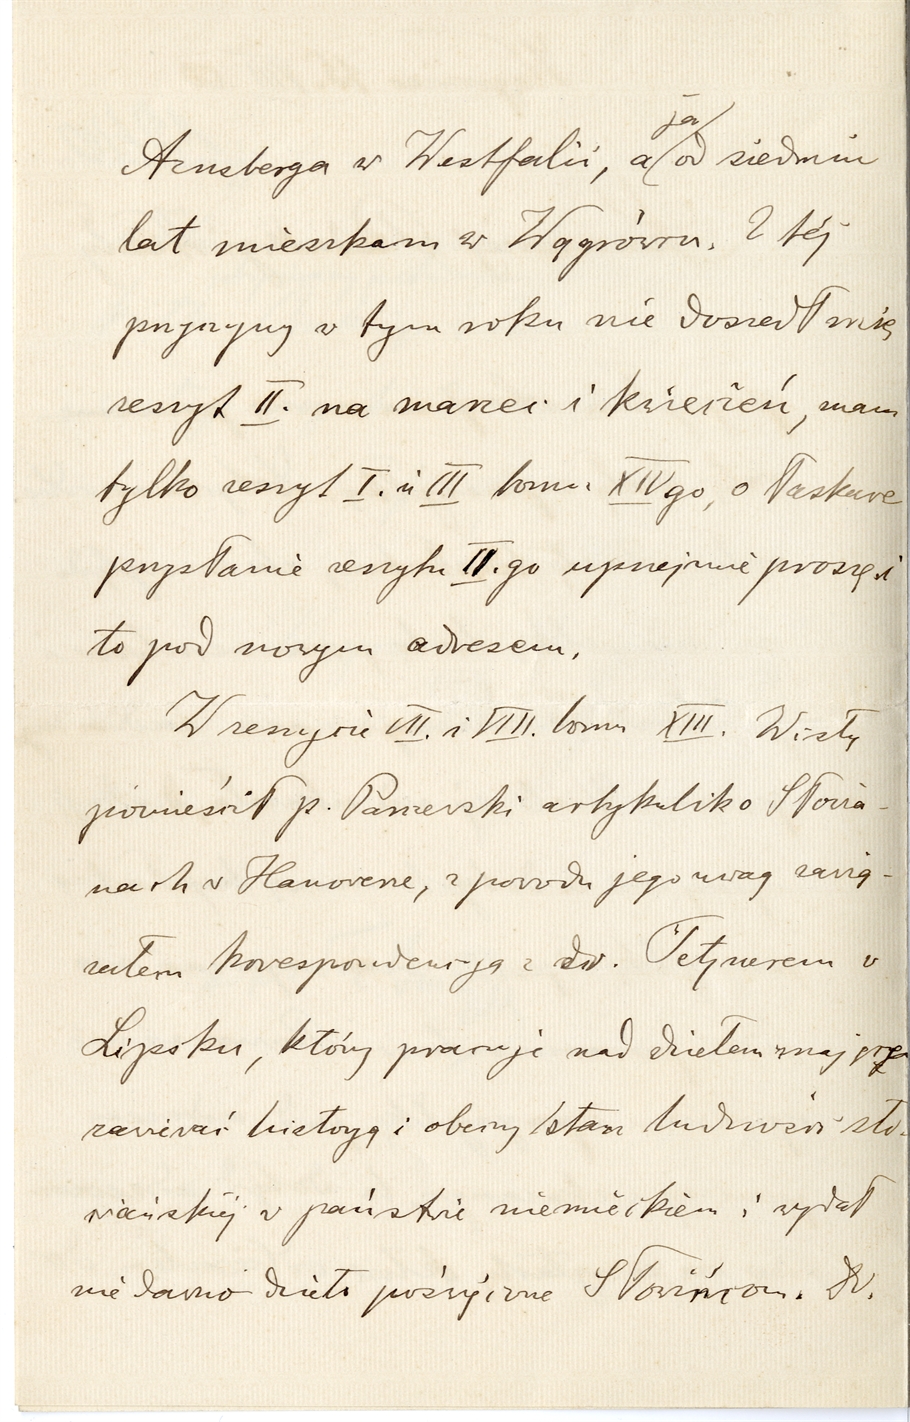 Arnsberga w Westfalii, a ja od siedmiu
lat mieszkam w Wągrówcu. Z téj
przyczyny w tym roku nie doszedł mię
zeszyt II. na marzec i kwiecień, mam
tylko zeszyt I. i III tomu XIVgo, o łaskawe
przysłanie zeszytu II.go uprzejmie proszę i
to pod nowym adresem.
W zeszycie VII. i VIII. tomu XIII. Wisły
pomieścił p. Parczewski artykulik o Słowia-
nach w Hanowerze, z powodu jego uwag zawią-
załem korespondencją z dr. Tetznerem w
Lipsku, który pracuje nad dziełem mającem
zawierać historyą i obecny stan ludności sło-
wiańskiéj w państwie niemieckiem i wydał
niedawno dzieło poświęcone Słowińcom. Dr.